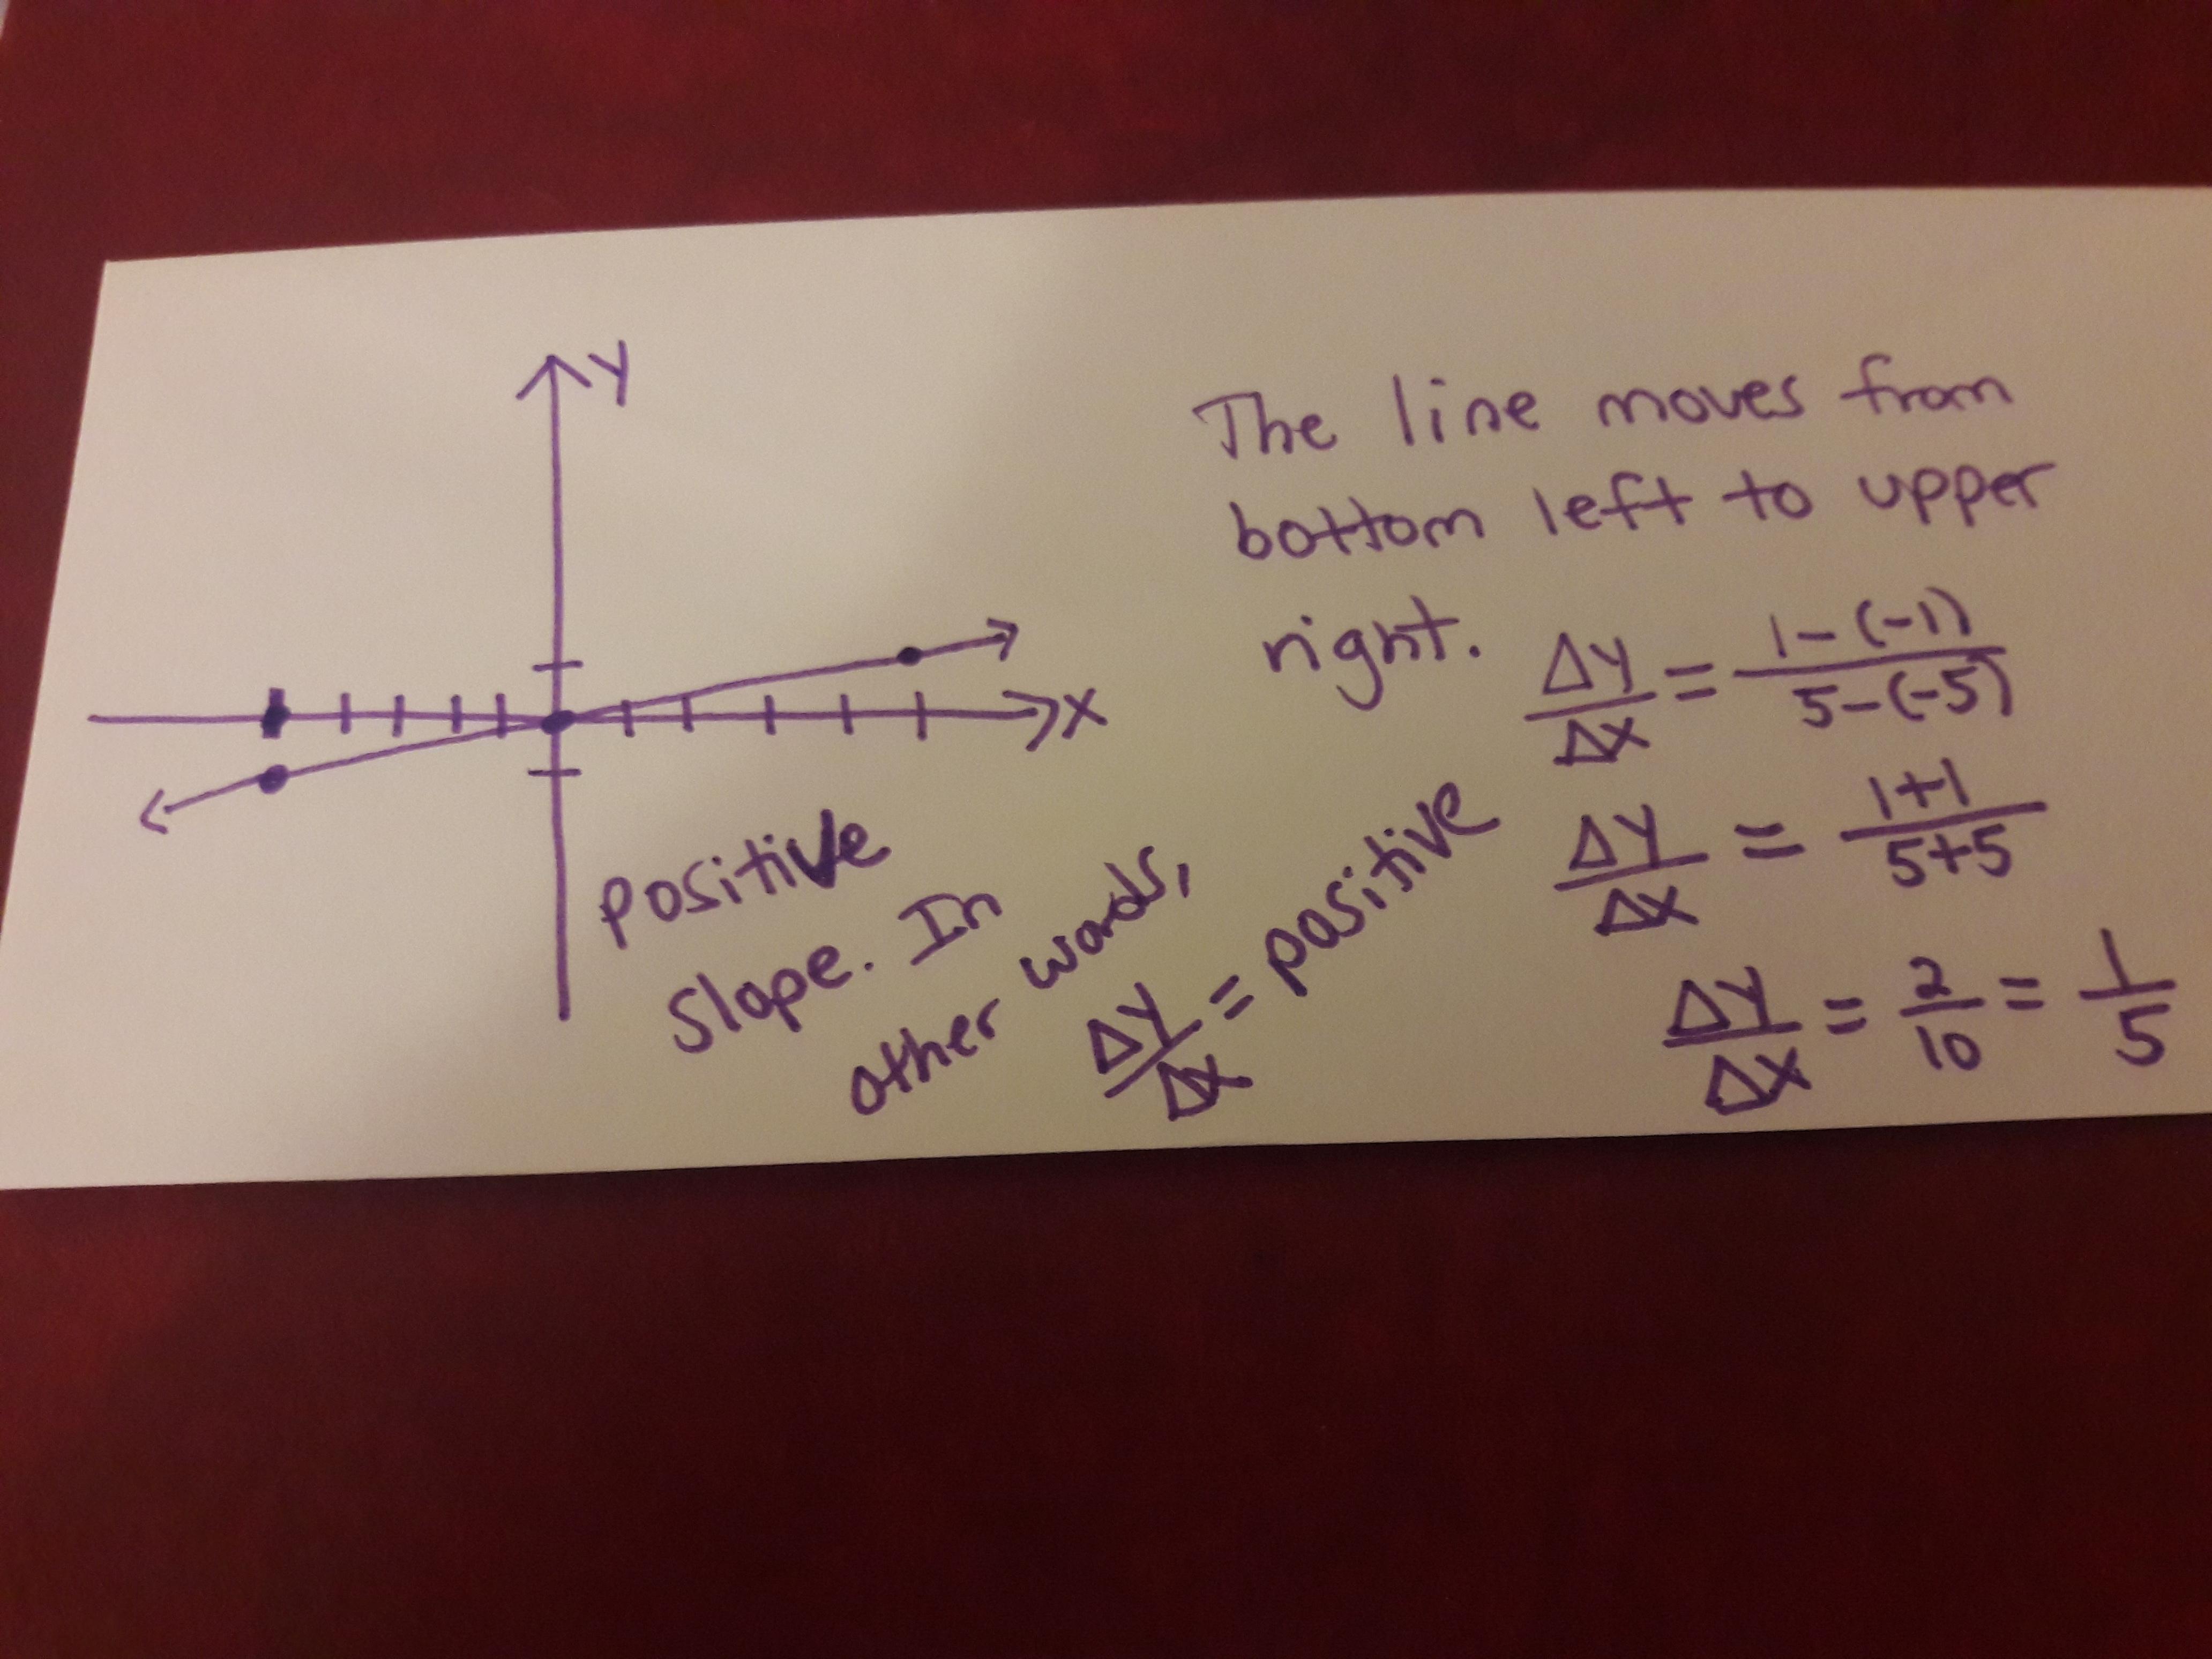 Y
X
The line moves from
bottom left to upper
right.
ΔY/ΔX = 1-(-1)/5-(-5)
ΔY/ΔX = 1+1/5+5
ΔY/ΔX = 2/10 = 1/5
positive
slope. In
other words,
ΔY/ΔX = positive